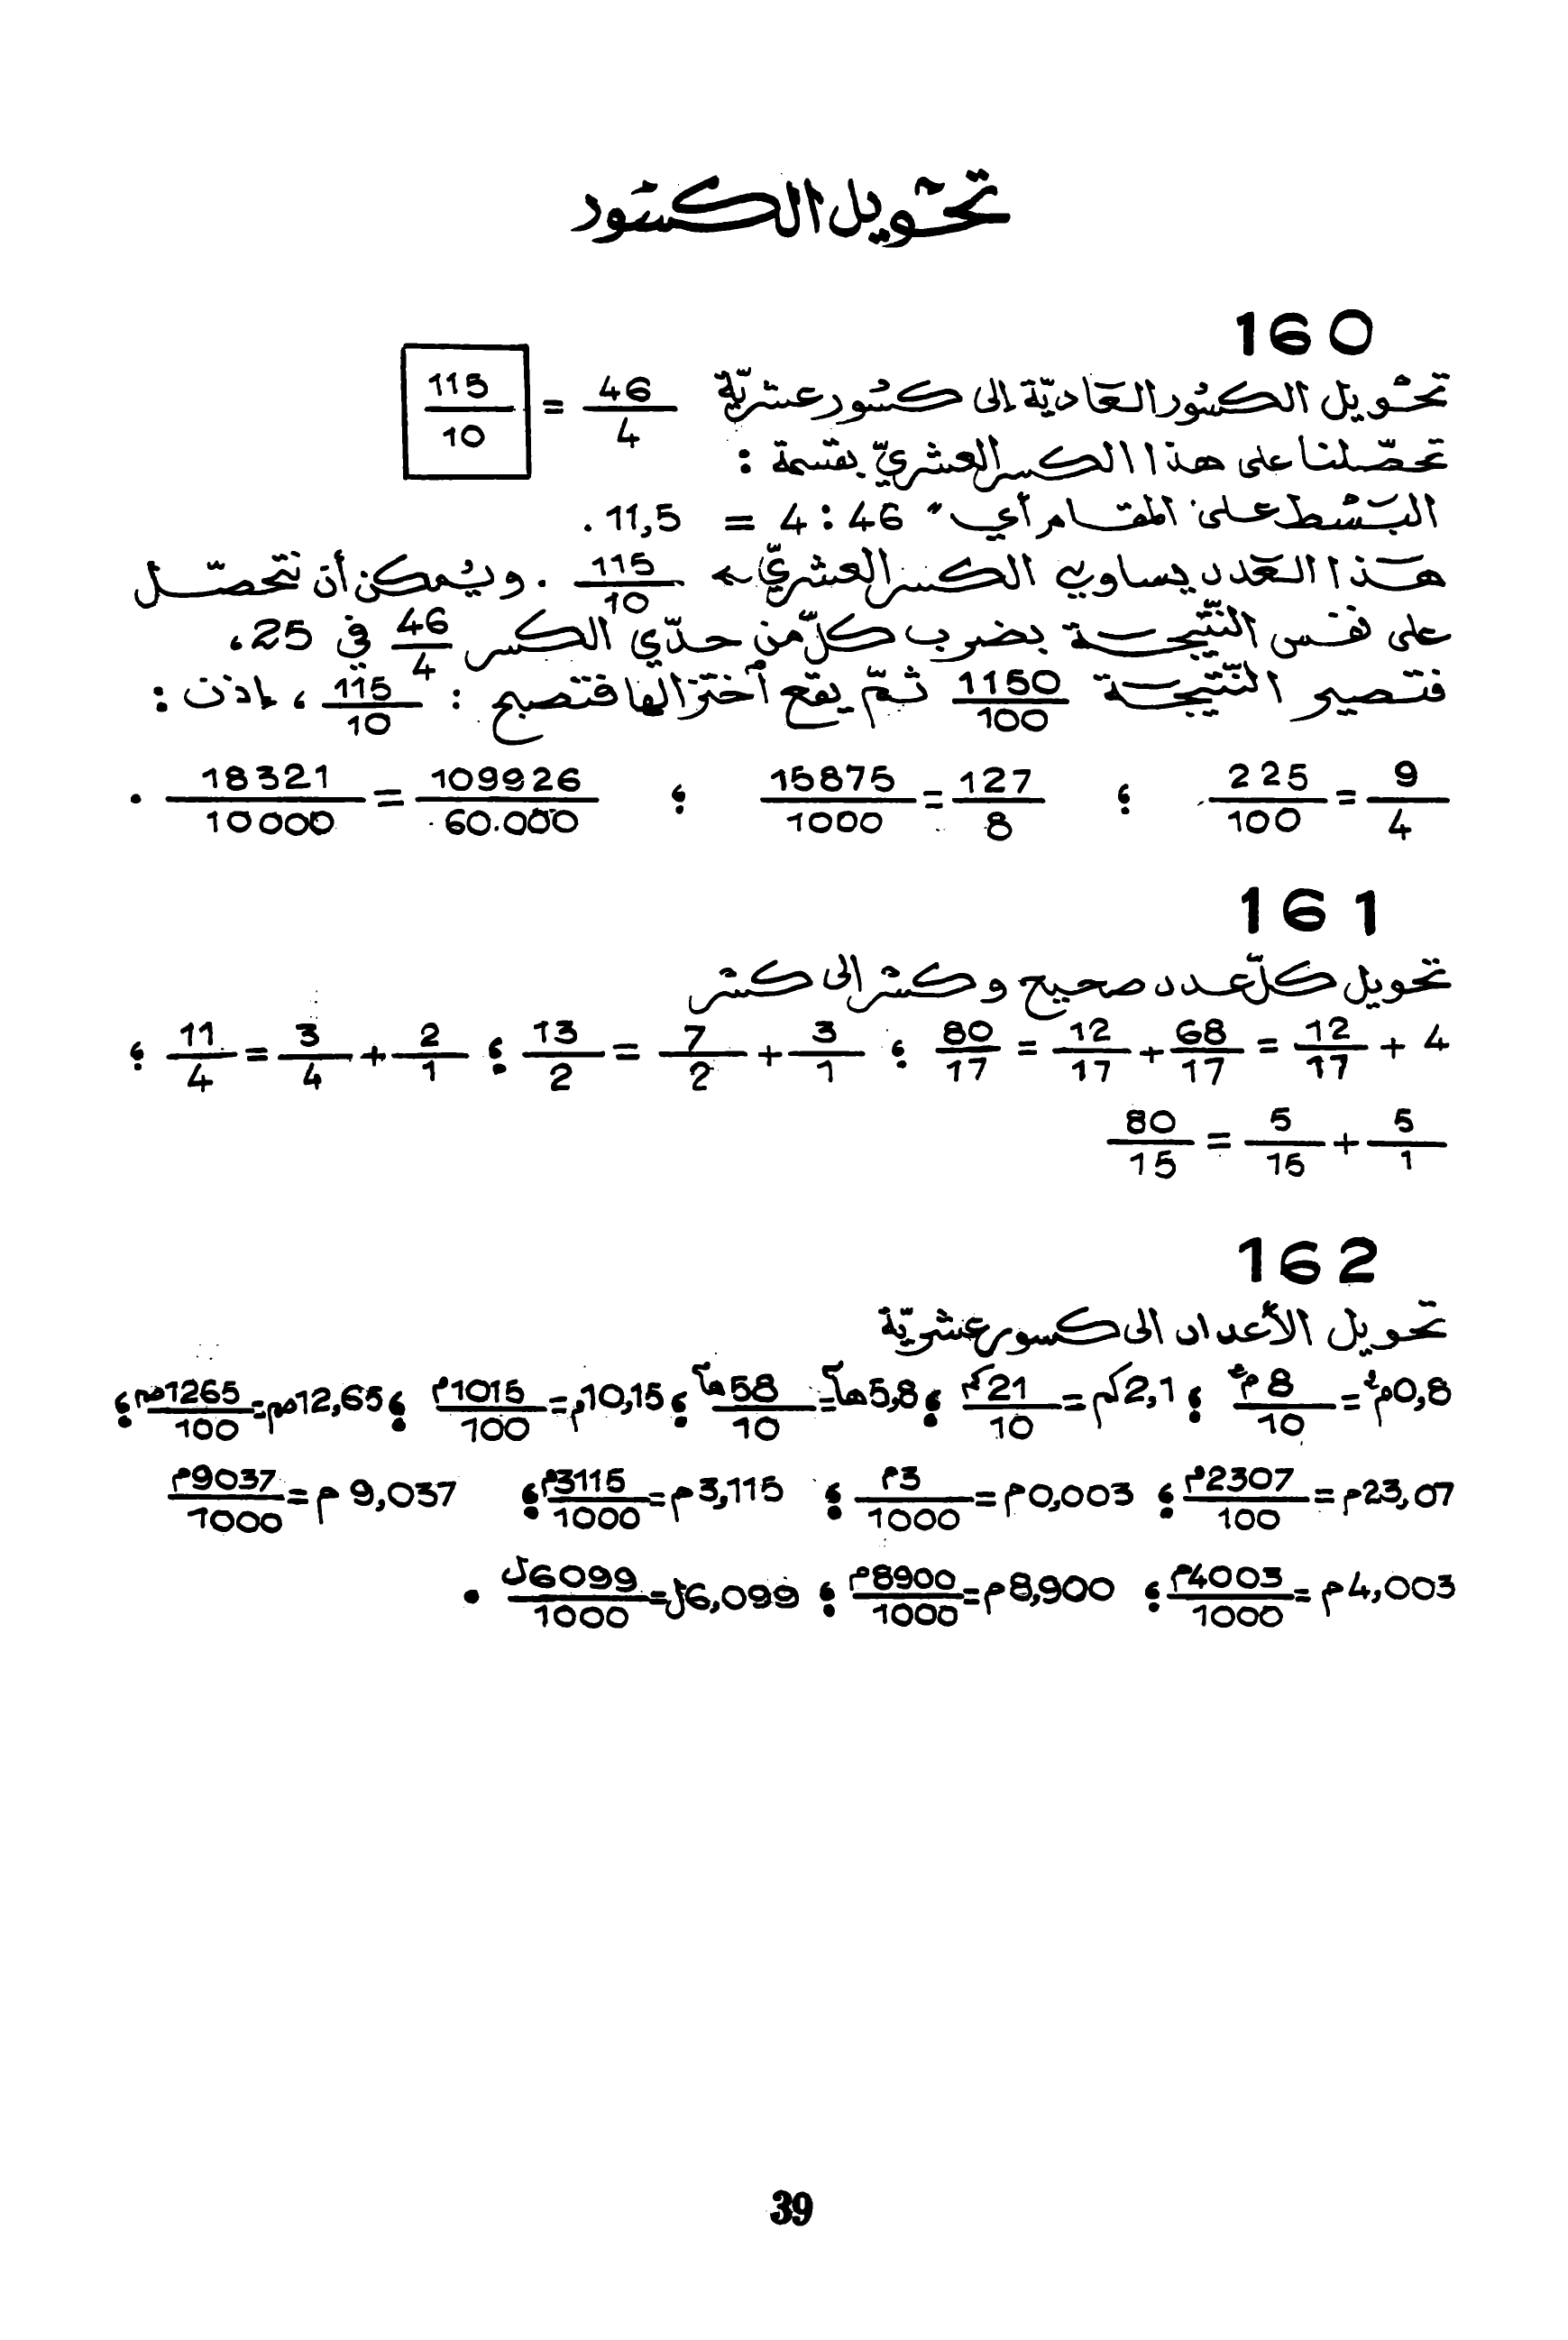 تحويل الكسور
160
تحويل الكسور العادية إلى كسور عشرية 46/4 = 115/10
تحصّلنا على هذا الكسر العشريّ بقسمة :
البسط على المقام أي 46 : 4 = 11,5 .
هذا العدد يساوي الكسر العشريّ ← 115/10 . ويُمكن أن نتحصّل
على نفس النّتيجة بضرب كلّ من حدّي الكسر 46/4 في 25،
فتصير النّتيجة 1150/100 ثمّ يقع اختزالها فتصبح : 115/10 ، إذن :
9/4 = 225/100 ؛ 127/8 = 15875/1000 ؛ 109926/60.000 = 18321/10000 .
161
تحويل كلّ عدد صحيح وكسر الى كسر
4 + 12/17 = 68/17 + 12/17 = 80/17 ؛ 3/1 + 7/2 = 13/2 ؛ 2/1 + 3/4 = 11/4 ؛
5/1 + 5/15 = 80/15
162
تحويل الأعداد الى كسور عشريّة
0,8 = 8/10 ؛ 2,1 كم = 21 كم/10 ؛ 5,8 هآ = 58 هآ/10 ؛ 10,15 م = 1015 م/100 ؛ 12,65 = 1265/100 ؛
23,07 م = 2307 م/100 ؛ 0,003 م = 3 م/1000 ؛ 3,115 م = 3115 م/1000 ؛ 9,037 م = 9037 م/1000
4,003 م = 4003 م/1000 ؛ 8,900 م = 8900 م/1000 ؛ 6,099 ل = 6099 ل/1000 .
39